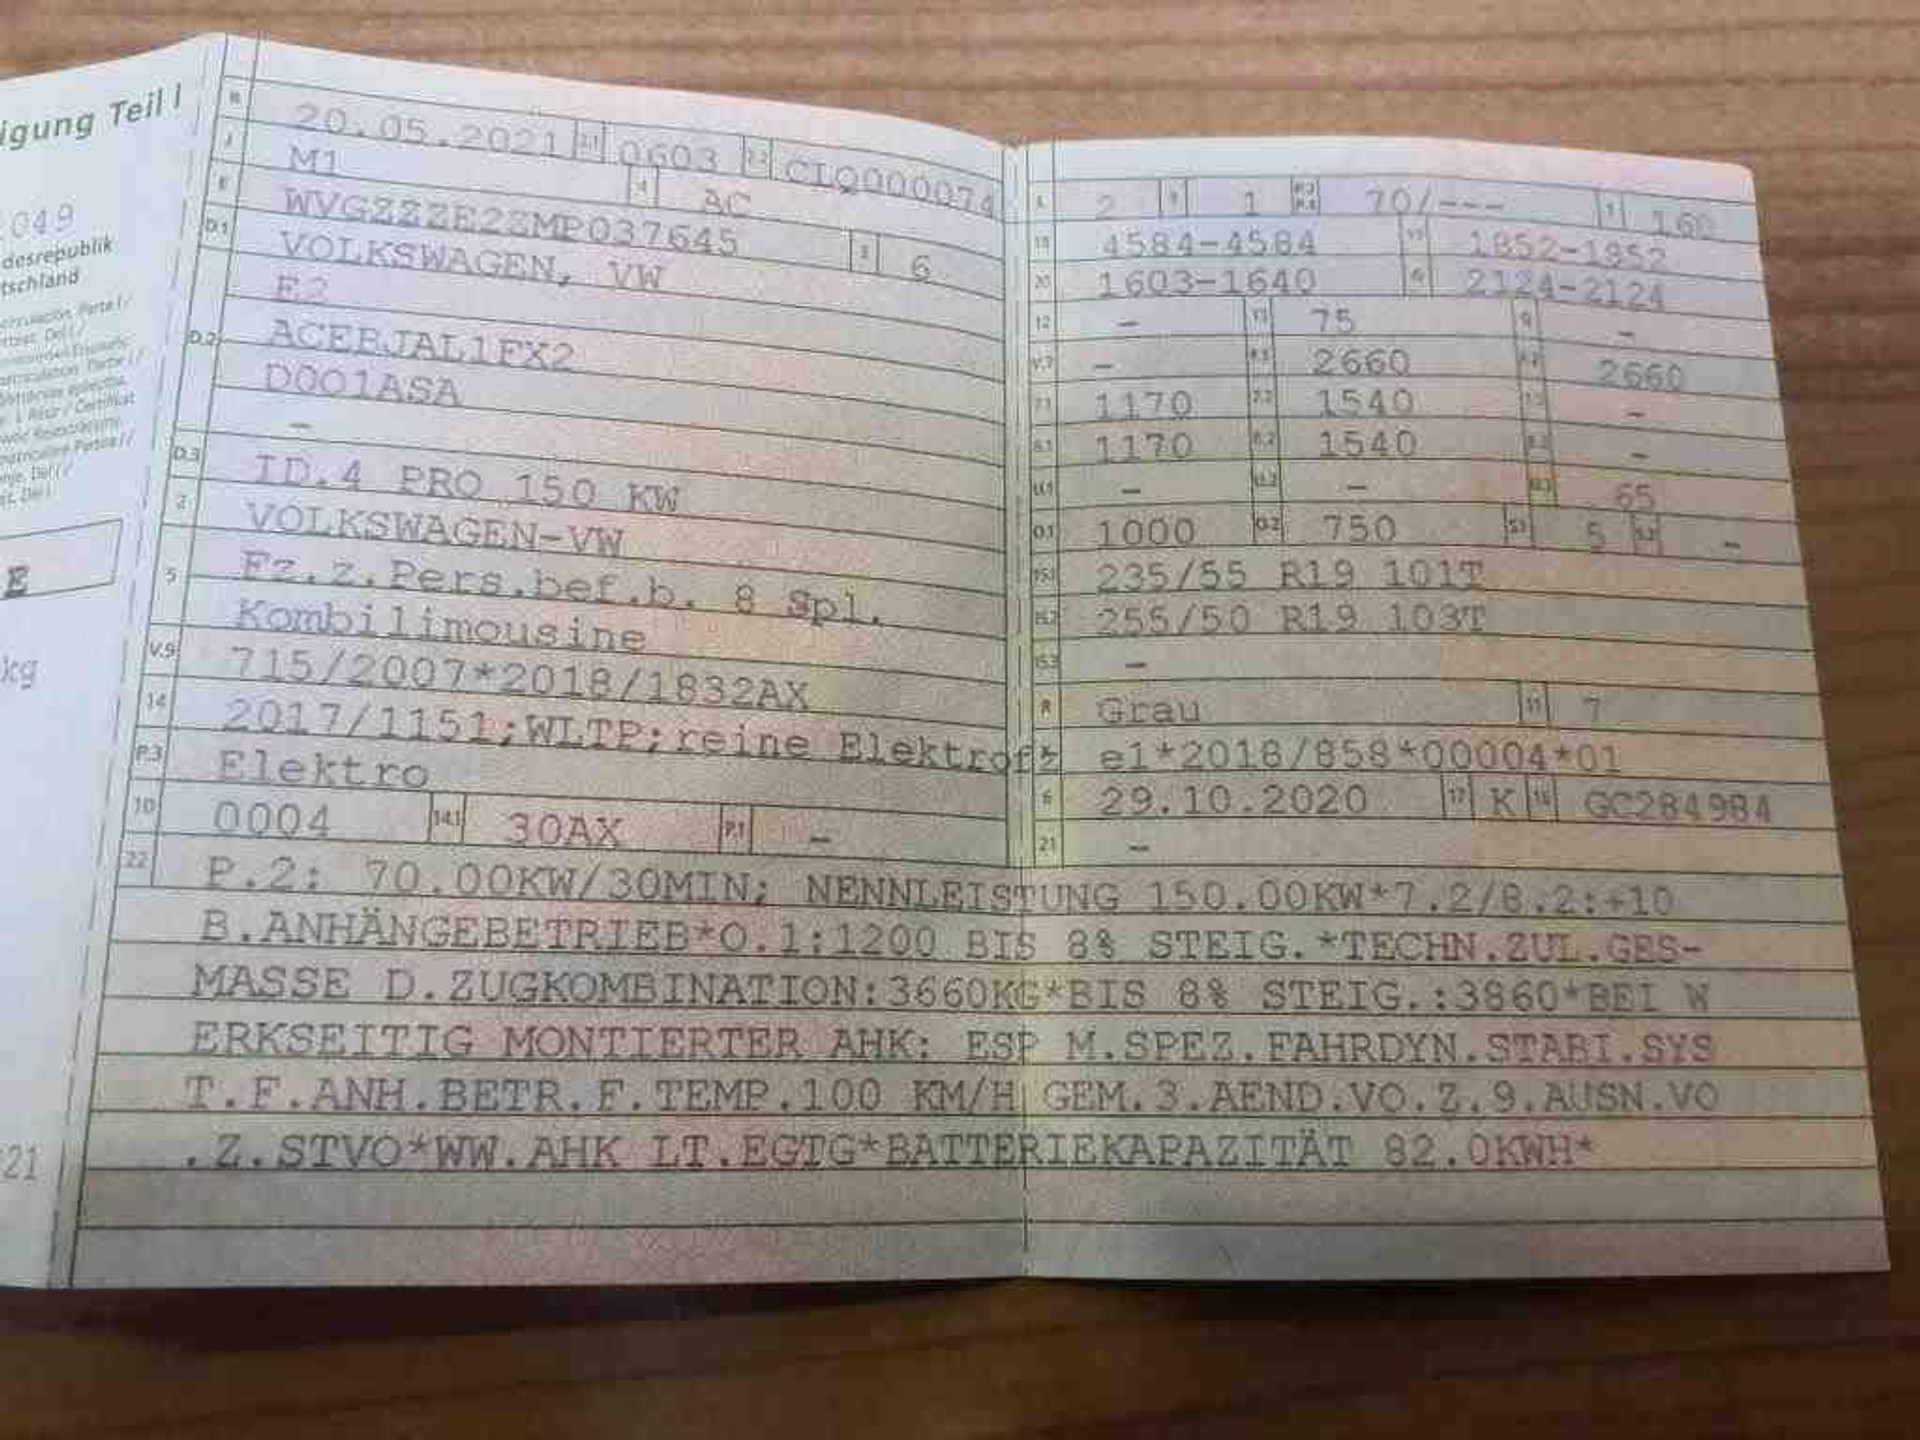 igung Teil I
049
desrepublik
tschland
E
kg
21
B 20.05.2021 2.1 0603 2.2 CLQ000074
J M1 4 AC
E WVGZZZE2ZMP037645 3 6
D.1 VOLKSWAGEN, VW
E2
D.2 ACEBJAL1FX2
D001ASA
–
D.3 ID.4 PRO 150 KW
2 VOLKSWAGEN-VW
5 Fz.z.Pers.bef.b. 8 Spl.
Kombilimousine
V.9 715/2007*2018/1832AX
14 2017/1151;WLTP;reine Elektrof
P.3 Elektro
10 0004 14.1 30AX P.1 –
2 9 1 70/--- T 160
18 4584-4584 19 1852-1852
20 1603-1640 G 2124-2124
12 – 13 75 Q –
V.7 – F.1 2660 F.2 2660
7.1 1170 7.2 1540 7.3 –
8.1 1170 8.2 1540 8.3 –
U.1 – U.2 – U.3 65
O.1 1000 O.2 750 S.1 5 S.2 –
15.1 235/55 R19 101T
15.2 255/50 R19 103T
15.3 –
R Grau 11 7
K e1*2018/858*00004*01
6 29.10.2020 17 K 16 GC284984
21 –
22 P.2: 70.00KW/30MIN; NENNLEISTUNG 150.00KW*7.2/8.2:+10
B.ANHÄNGEBETRIEB*O.1:1200 BIS 8% STEIG.*TECHN.ZUL.GES-
MASSE D.ZUGKOMBINATION:3660KG*BIS 8% STEIG.:3860*BEI W
ERKSEITIG MONTIERTER AHK: ESP M.SPEZ.FAHRDYN.STABI.SYS
T.F.ANH.BETR.F.TEMP.100 KM/H GEM.3.AEND.VO.Z.9.AUSN.VO
.Z.STVO*WW.AHK LT.EGTG*BATTERIEKAPAZITÄT 82.0KWH*